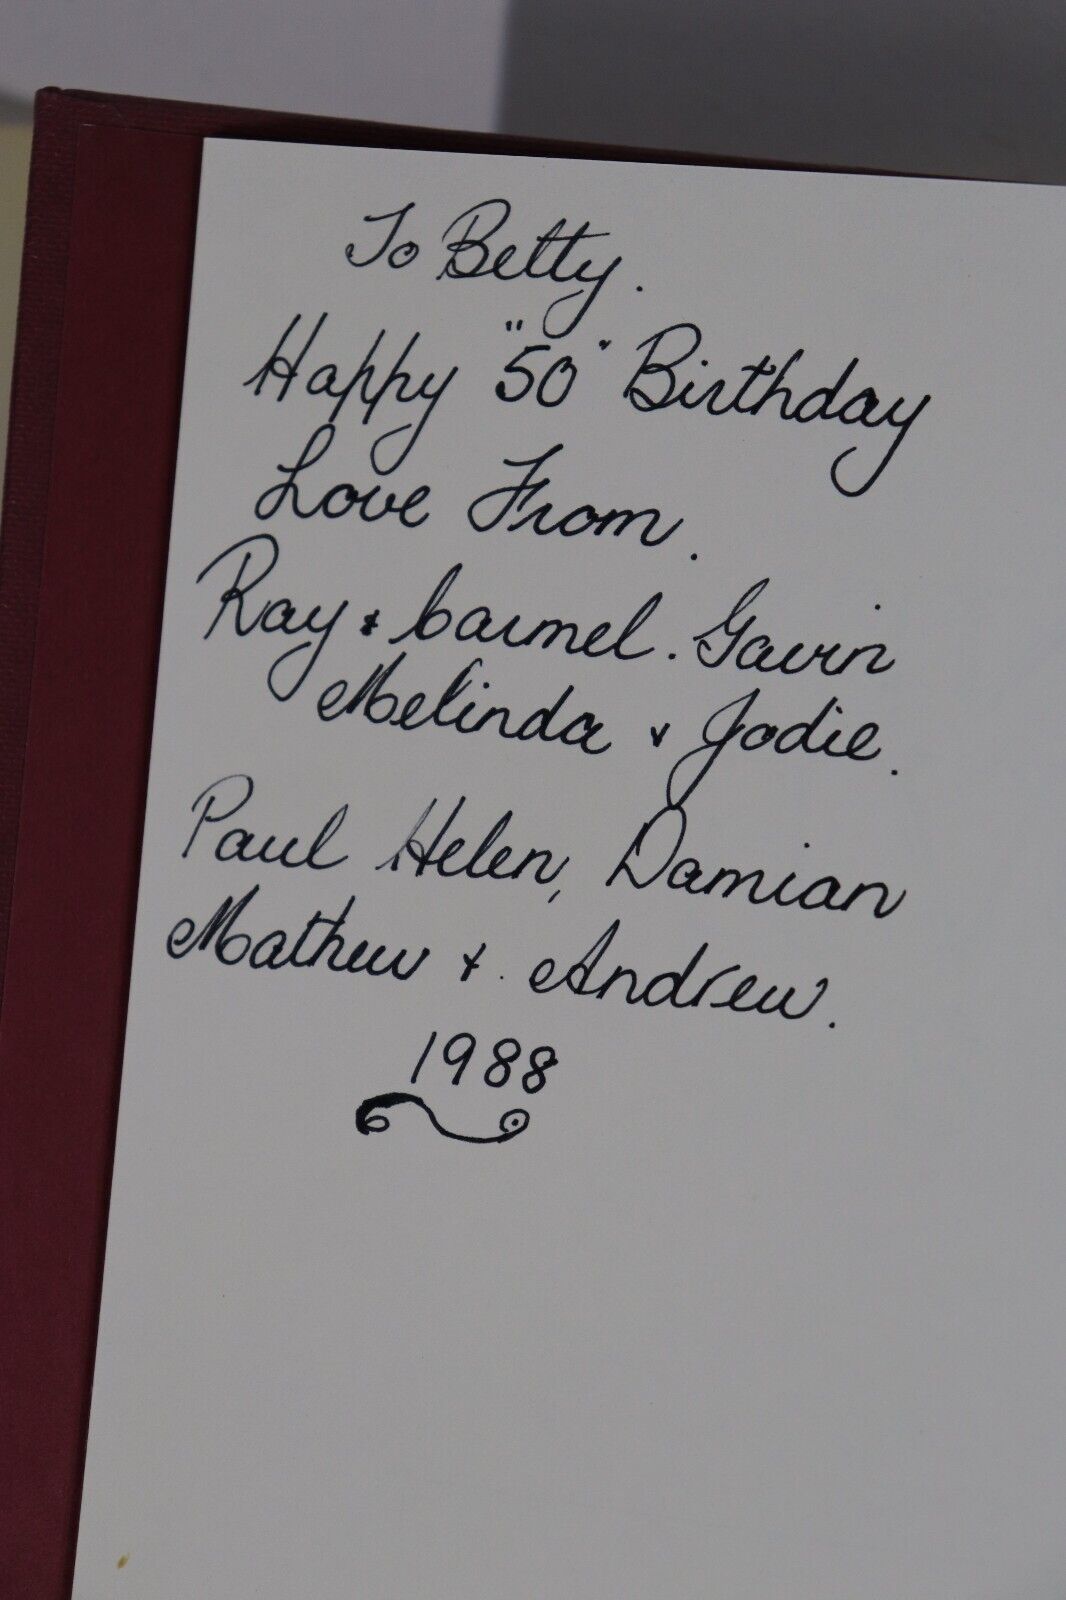 To Betty.
Happy "50" Birthday
Love From.
Ray & Carmel. Gavin
Melinda & Jodie.
Paul Helen, Damian
Mathew & Andrew.
1988